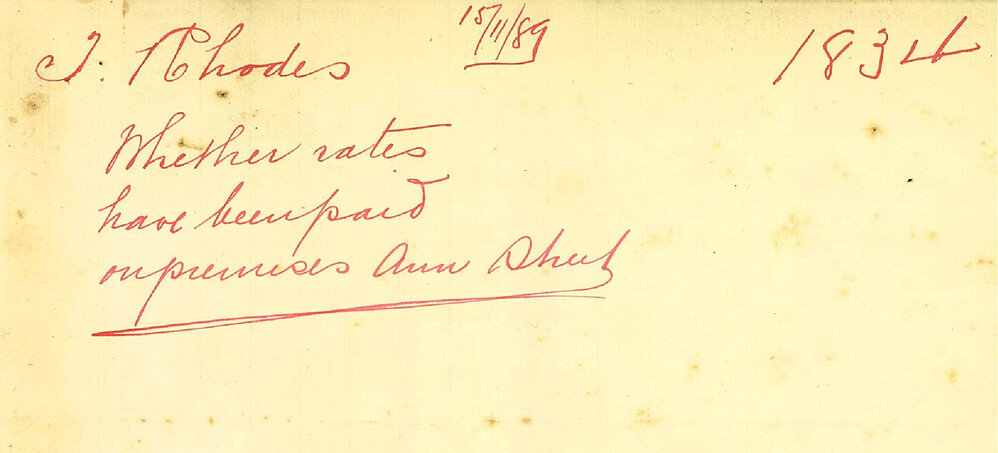 J. Rhodes 15/11/89 1834
Whether rates
have been paid
on premises Ann Street